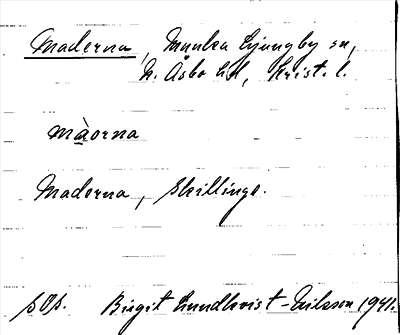 Maderna, Munka Ljungby sn,
N. Åsbo hd, Krist. l.
màorna
Maderna, skillinge.
sOp. Birgit Lundkvist-Eriksson 1941.